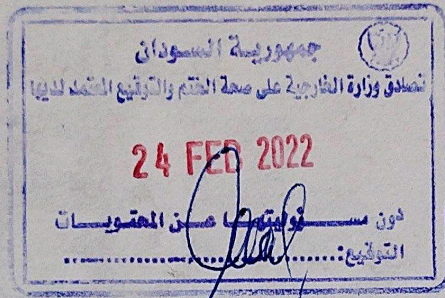 جمهورية السودان
تصادق وزارة الخارجية على صحة الختم والتوقيع المعتمد لديها
24 FEB 2022
دون مسئوليتها عن المحتويات
التوقيع:....................